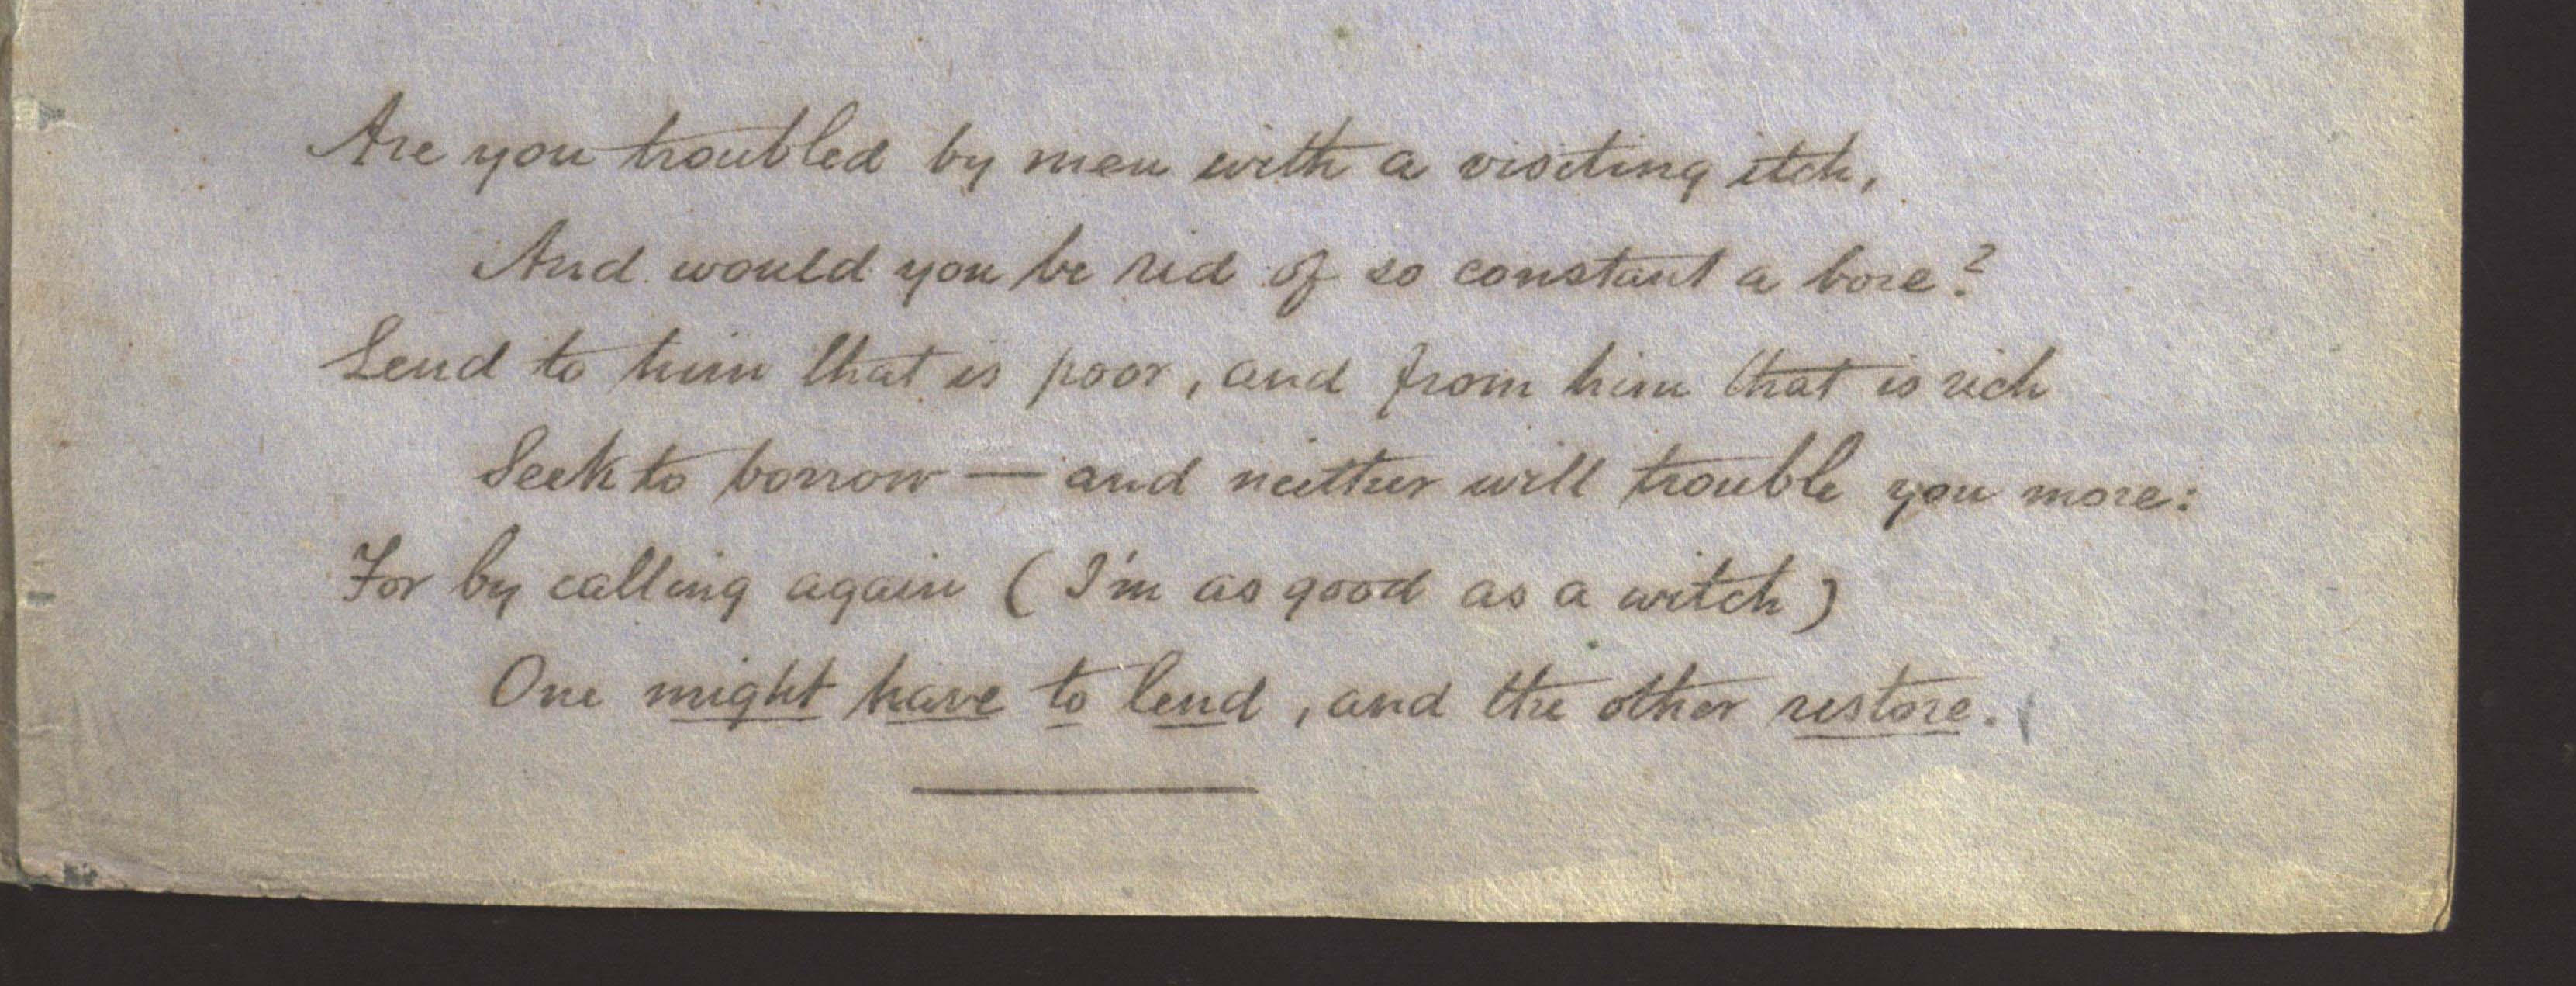 Are you troubled by men with a visiting itch,
And would you be rid of so constant a bore?
Lend to him that is poor, and from him that is rich
Seek to borrow — and neither will trouble you more:
For by calling again (I'm as good as a witch)
One might have to lend, and the other restore.